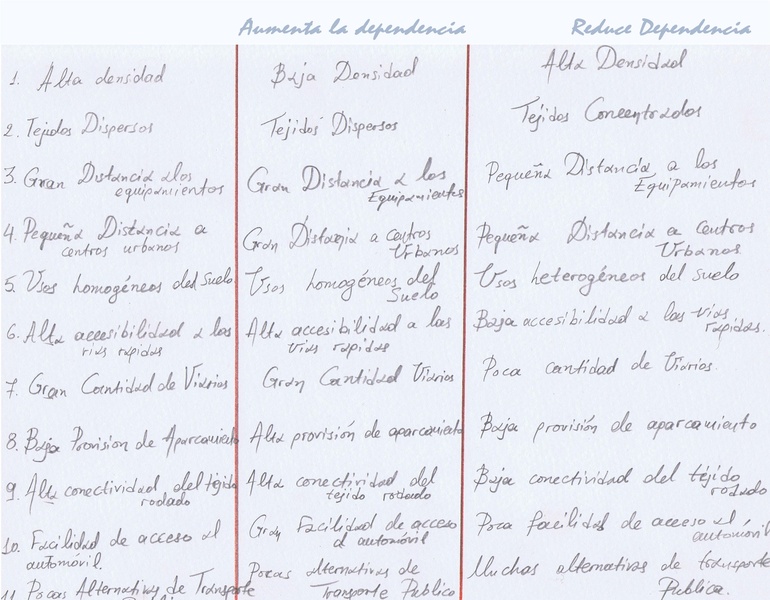 Aumenta la dependencia
Reduce Dependencia
1. Alta densidad
Baja Densidad
Alta Densidad
2. Tejidos Dispersos
Tejidos Dispersos
Tejidos Concentrados
3. Gran Distancia a los
equipamientos
Gran Distancia a los
Equipamientos
Pequeña Distancia a los
Equipamientos
4. Pequeña Distancia a
centros urbanos
Gran Distancia a centros
Urbanos
Pequeña Distancia a centros
Urbanos
5. Usos homogéneos del Suelo
Usos homogéneos del
Suelo
Usos heterogéneos del suelo
6. Alta accesibilidad a las
vias rapidas
Alta accesibilidad a las
vias rapidas
Baja accesibilidad a las vias
rapidas.
7. Gran Cantidad de Viarios
Gran Cantidad Viarios
Poca cantidad de Viarios.
8. Baja Provision de Aparcamiento
Alta provisión de aparcamiento
Baja provisión de aparcamiento
9. Alta conectividad del tejido
rodado
Alta conectividad del
tejido rodado
Baja conectividad del tejido
rodado
10. Facilidad de acceso al
automóvil.
Gran Facilidad de acceso
al automóvil
Poca facilidad de acceso al
automóvil
11. Pocas Alternativas de Transporte
Pocas alternativas de
Transporte Publico
Muchas alternativas de transporte
Publica.